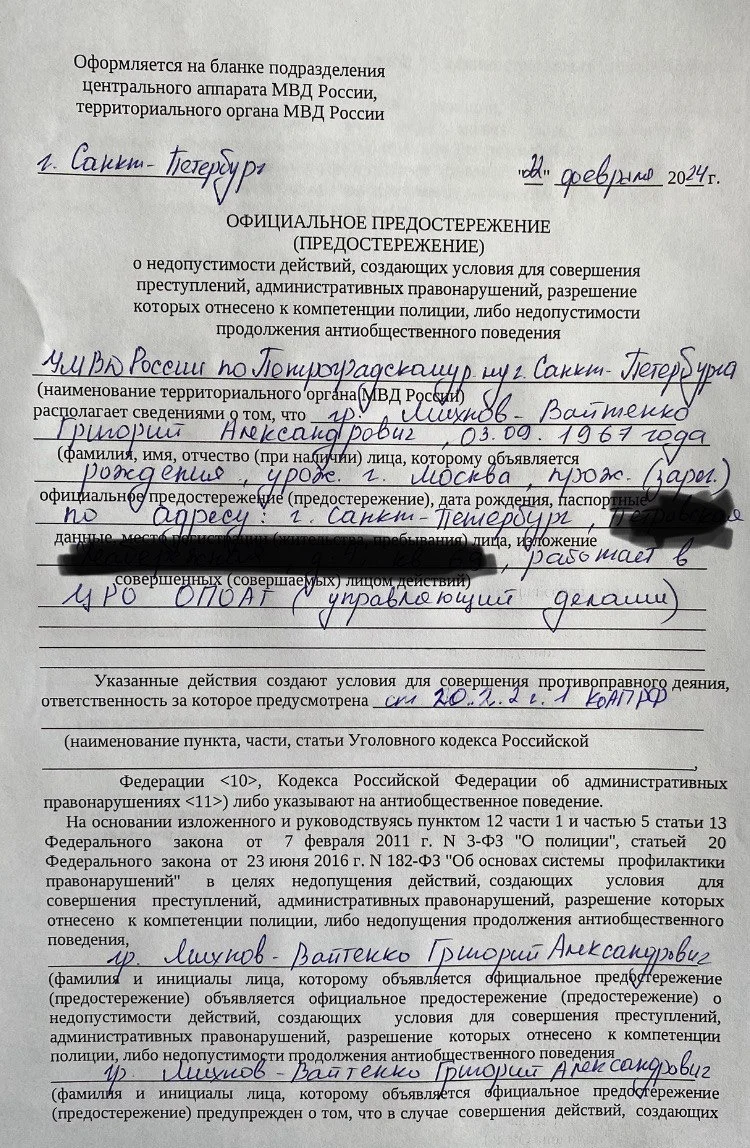 Оформляется на бланке подразделения
центрального аппарата МВД России,
территориального органа МВД России
г. Санкт-Петербург "22" февраля 2024 г.
ОФИЦИАЛЬНОЕ ПРЕДОСТЕРЕЖЕНИЕ
(ПРЕДОСТЕРЕЖЕНИЕ)
о недопустимости действий, создающих условия для совершения
преступлений, административных правонарушений, разрешение
которых отнесено к компетенции полиции, либо недопустимости
продолжения антиобщественного поведения
УМВД России по Петроградскому р-ну г. Санкт-Петербурга
(наименование территориального органа(МВД России)
располагает сведениями о том, что гр. Михнов-Вайтенко
Григорий Александрович, 03.09.1967 года
(фамилия, имя, отчество (при наличии) лица, которому объявляется
рождения, урож. г. Москва, прож. (зарег.)
официальное предостережение (предостережение), дата рождения, паспортные
по адресу: г. Санкт-Петербург,
данные, место регистрации (жительства, пребывания) лица, изложение
, работает в
совершенных (совершаемых) лицом действий)
ЦРО ОПОАТ (управляющий делами)
Указанные действия создают условия для совершения противоправного деяния,
ответственность за которое предусмотрена ст 20.2.2 ч. 1 КоАП РФ
(наименование пункта, части, статьи Уголовного кодекса Российской
,
Федерации <10>, Кодекса Российской Федерации об административных
правонарушениях <11>) либо указывают на антиобщественное поведение.
На основании изложенного и руководствуясь пунктом 12 части 1 и частью 5 статьи 13
Федерального закона от 7 февраля 2011 г. N 3-ФЗ "О полиции", статьей 20
Федерального закона от 23 июня 2016 г. N 182-ФЗ "Об основах системы профилактики
правонарушений" в целях недопущения действий, создающих условия для
совершения преступлений, административных правонарушений, разрешение которых
отнесено к компетенции полиции, либо недопущения продолжения антиобщественного
поведения,
гр. Михнов-Вайтенко Григорий Александрович
(фамилия и инициалы лица, которому объявляется официальное предостережение
(предостережение) объявляется официальное предостережение (предостережение) о
недопустимости действий, создающих условия для совершения преступлений,
административных правонарушений, разрешение которых отнесено к компетенции
полиции, либо недопустимости продолжения антиобщественного поведения
гр. Михнов-Вайтенко Григорий Александрович
(фамилия и инициалы лица, которому объявляется официальное предостережение
(предостережение) предупрежден о том, что в случае совершения действий, создающих